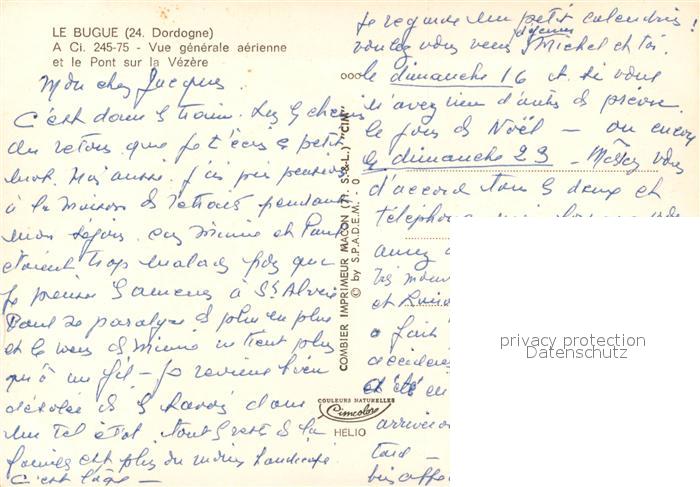 LE BUGUE (24. Dordogne)
A Ci. 245-75 - Vue générale aérienne
et le Pont sur la Vézère
Mon cher Jacques
C'est dans le train. Sur le chemin
du retour que je t'écris ce petit
mot. Moi aussi j'ai pris pension
à la maison de retraite pendant
mon séjour car Mimie et Paul
étaient trop malades pour que
je puisse à St Alvère
Paul se paralyse de plus en plus
et de Mimie ne tient plus
qu'à un fil - Je reviens bien
désolée de les savoir dans
un tel état. Tout le reste de la
famille est plus ou moins handicapé
C'est l'âge -
COMBIER IMPRIMEUR MACON (71. S.-&-L.) "CIM"
© by S.P.A.D.E.M.
COULEURS NATURELLES
Cimcolor
HELIO
Je regarde un petit calendrier !
voulez vous venir déjeuner Michel et toi
le dimanche 16 et si vous
n'avez rien d'autre de prévu
le jour de Noël - ou encore
le dimanche 23 - vous
d'accord tous les deux et
téléphone
et
a fait
été en
tard -
privacy protection
Datenschutz